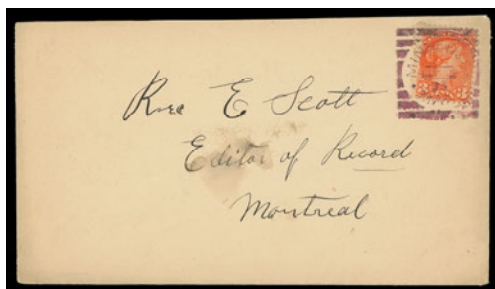 E Scott
Editor of Record
Montreal